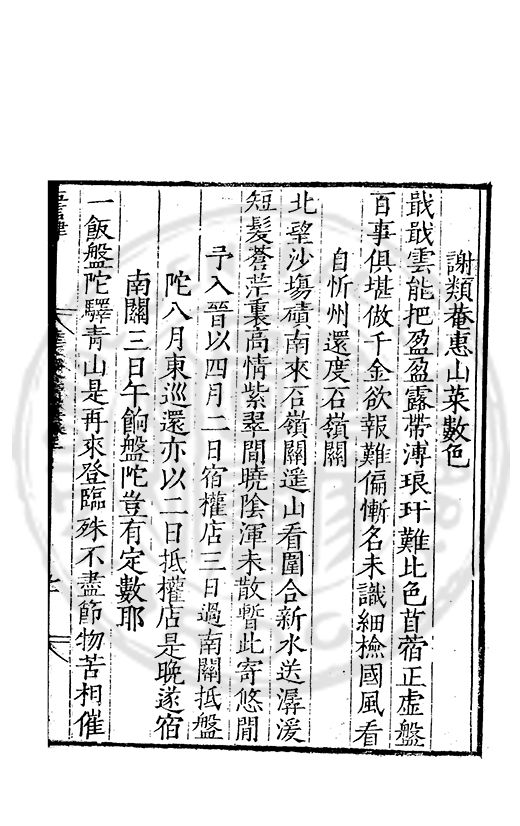 謝類菴惠山菜數色
戢戢雲能把盈盈露帶漙琅玕難比色苜蓿正虚盤
百事俱堪做千金欲報難偏慚名未識細檢國風看
自忻州還度石嶺關
北望沙塲磧南來石嶺關遥山看圍合新水送潺湲
短髮蒼茫裏高情紫翠間曉陰渾未散暫此寄悠閒
予入晉以四月二日宿權店三日過南關抵盤
陀八月東巡還亦以二日抵權店是晚遂宿
南關三日午餉盤陀豈有定數耶
一飯盤陀驛青山是再來登臨殊不盡節物苦相催
五言律